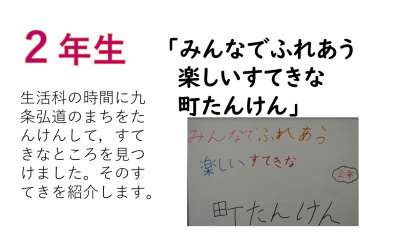 2年生
生活科の時間に九
条弘道のまちをた
んけんして，すて
きなところを見つ
けました。そのす
てきを紹介します。
「みんなでふれあう
楽しいすてきな
町たんけん」
みんなでふれあう
楽しいすてきな
町たんけん